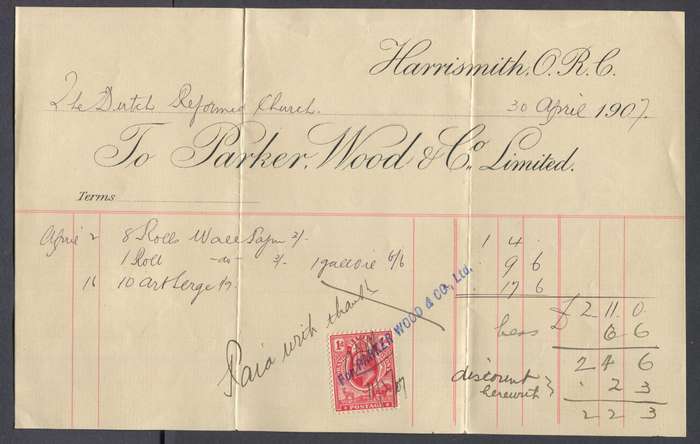 Harrismith, O.R.C.
The Dutch Reformed Church. 30 April 1907.
To Parker, Wood & Co., Limited.
Terms
April 2 8 Rolls Wall Paper 3/- 1 4 .
1 Roll -do- 3/- 1 gall 6/6 9 6
16 10 Art Serge 17 6
£ 2 11 0
less 6 6
2 4 6
discount herewith } . 2 3
2 2 3
Paid with thanks
For PARKER WOOD & CO., Ltd.
1d
POSTAGE